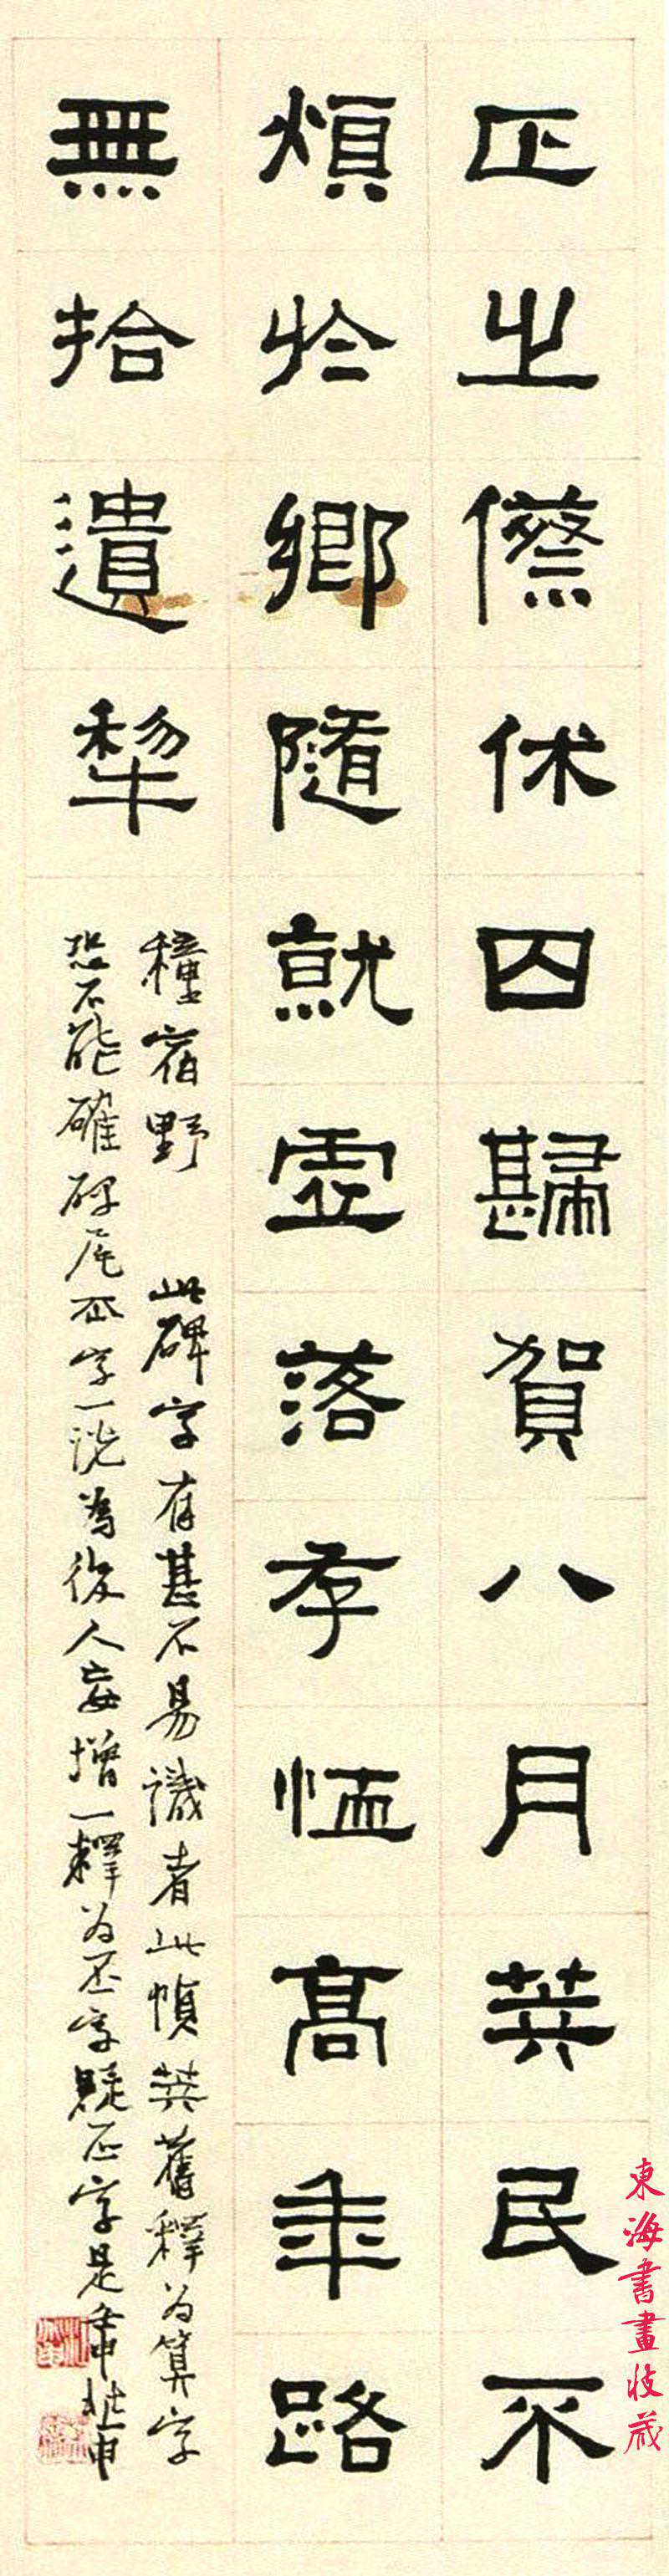 正之僚休囚歸賀八月筭民不
煩於鄉隨就虛落存恤高年路
無拾遺犂
種宿野 此碑字有甚不易識者此幀筭舊釋為算字
恐不能確碑尾字一說為後人妄增一釋為丕字疑正字是壬申
東海書畫收藏